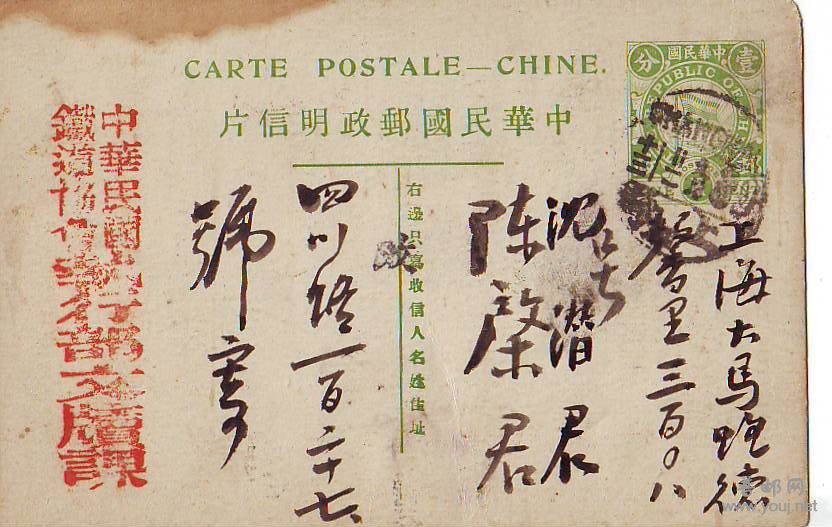 CARTE POSTALE—CHINE.
中華民國郵政明信片
中華民國
壹
分
右邊只寫收信人名姓住址
上海大馬路德
馨里三百〇八
號
沈潜君
陈啓君
四川路一百二十七
號寄
中華民國
鐵道協會執行部文牘課
www.youj.net